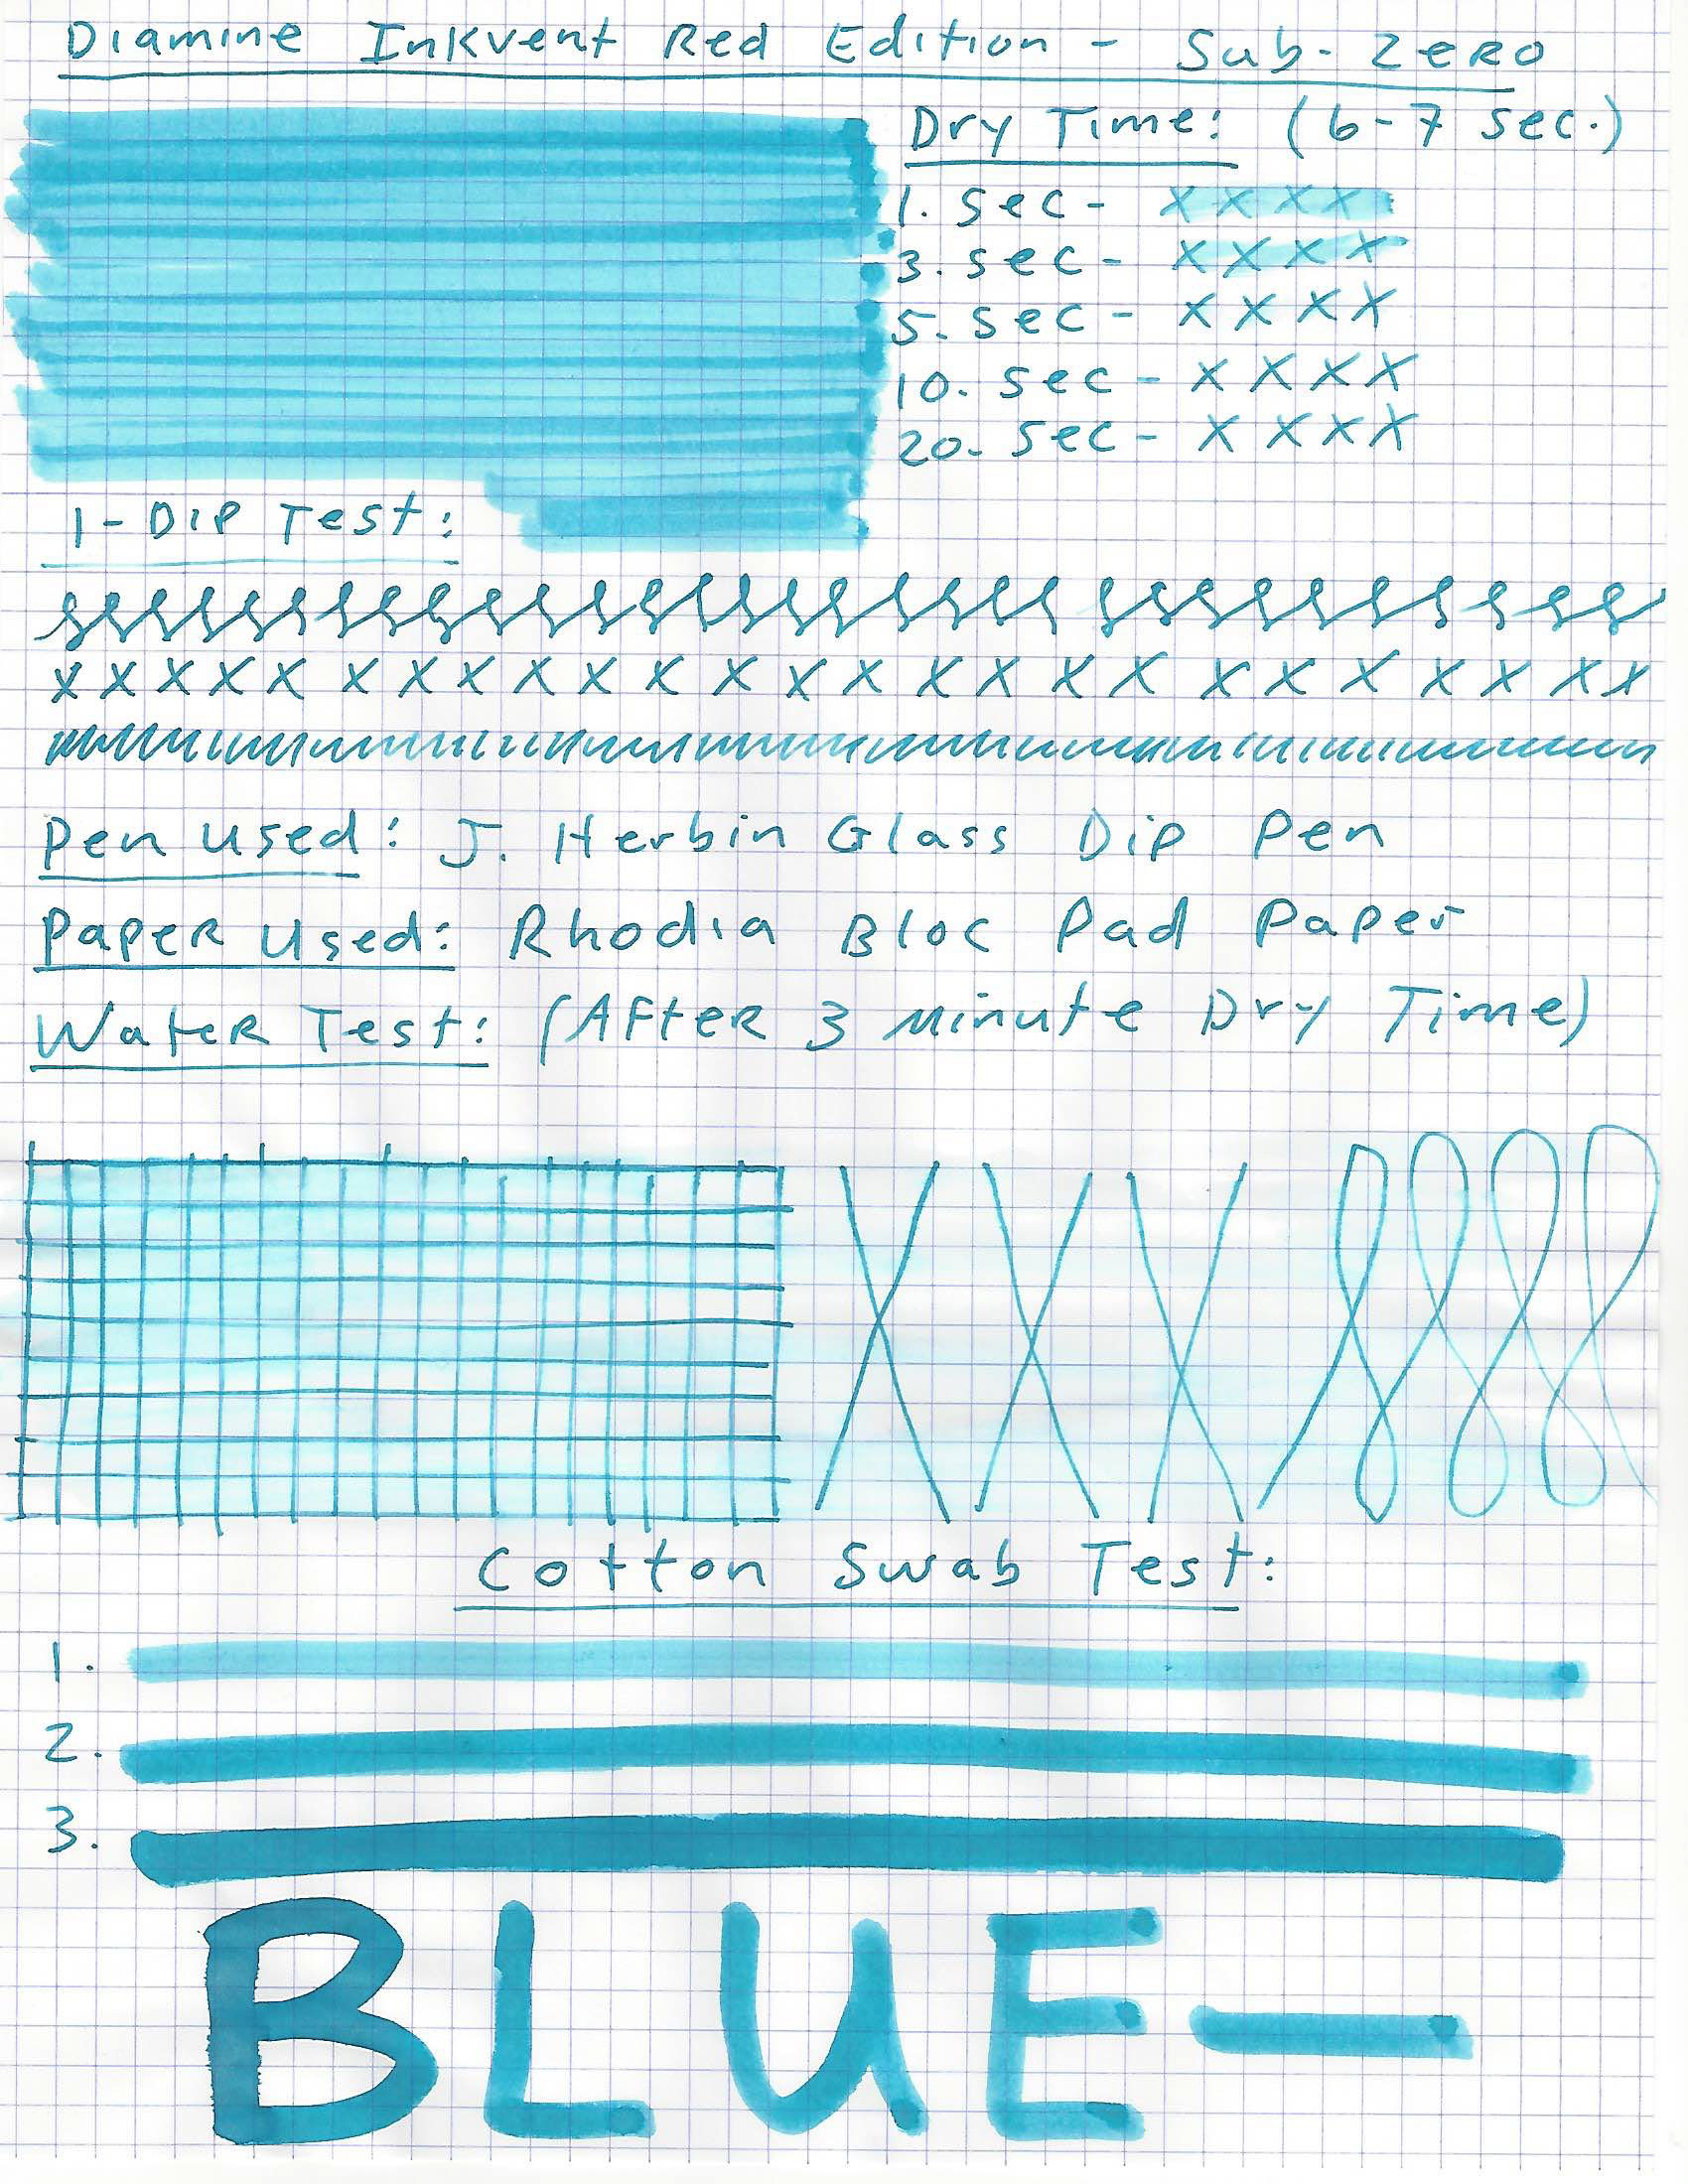 Diamine Inkvent Red Edition - Sub-Zero
Dry Time: (6-7 sec.)
1. sec- x x x x
3. sec- x x x x
5. sec- x x x x
10. sec- x x x x
20. sec- x x x x
1-Dip Test:
x x x x x x x x x x x x x x x x x x x x x x x x x
Pen Used: J. Herbin Glass Dip Pen
Paper Used: Rhodia Bloc Pad Paper
Water Test: (After 3 Minute Dry Time)
X X X
Cotton Swab Test:
1.
2.
3.
BLUE-